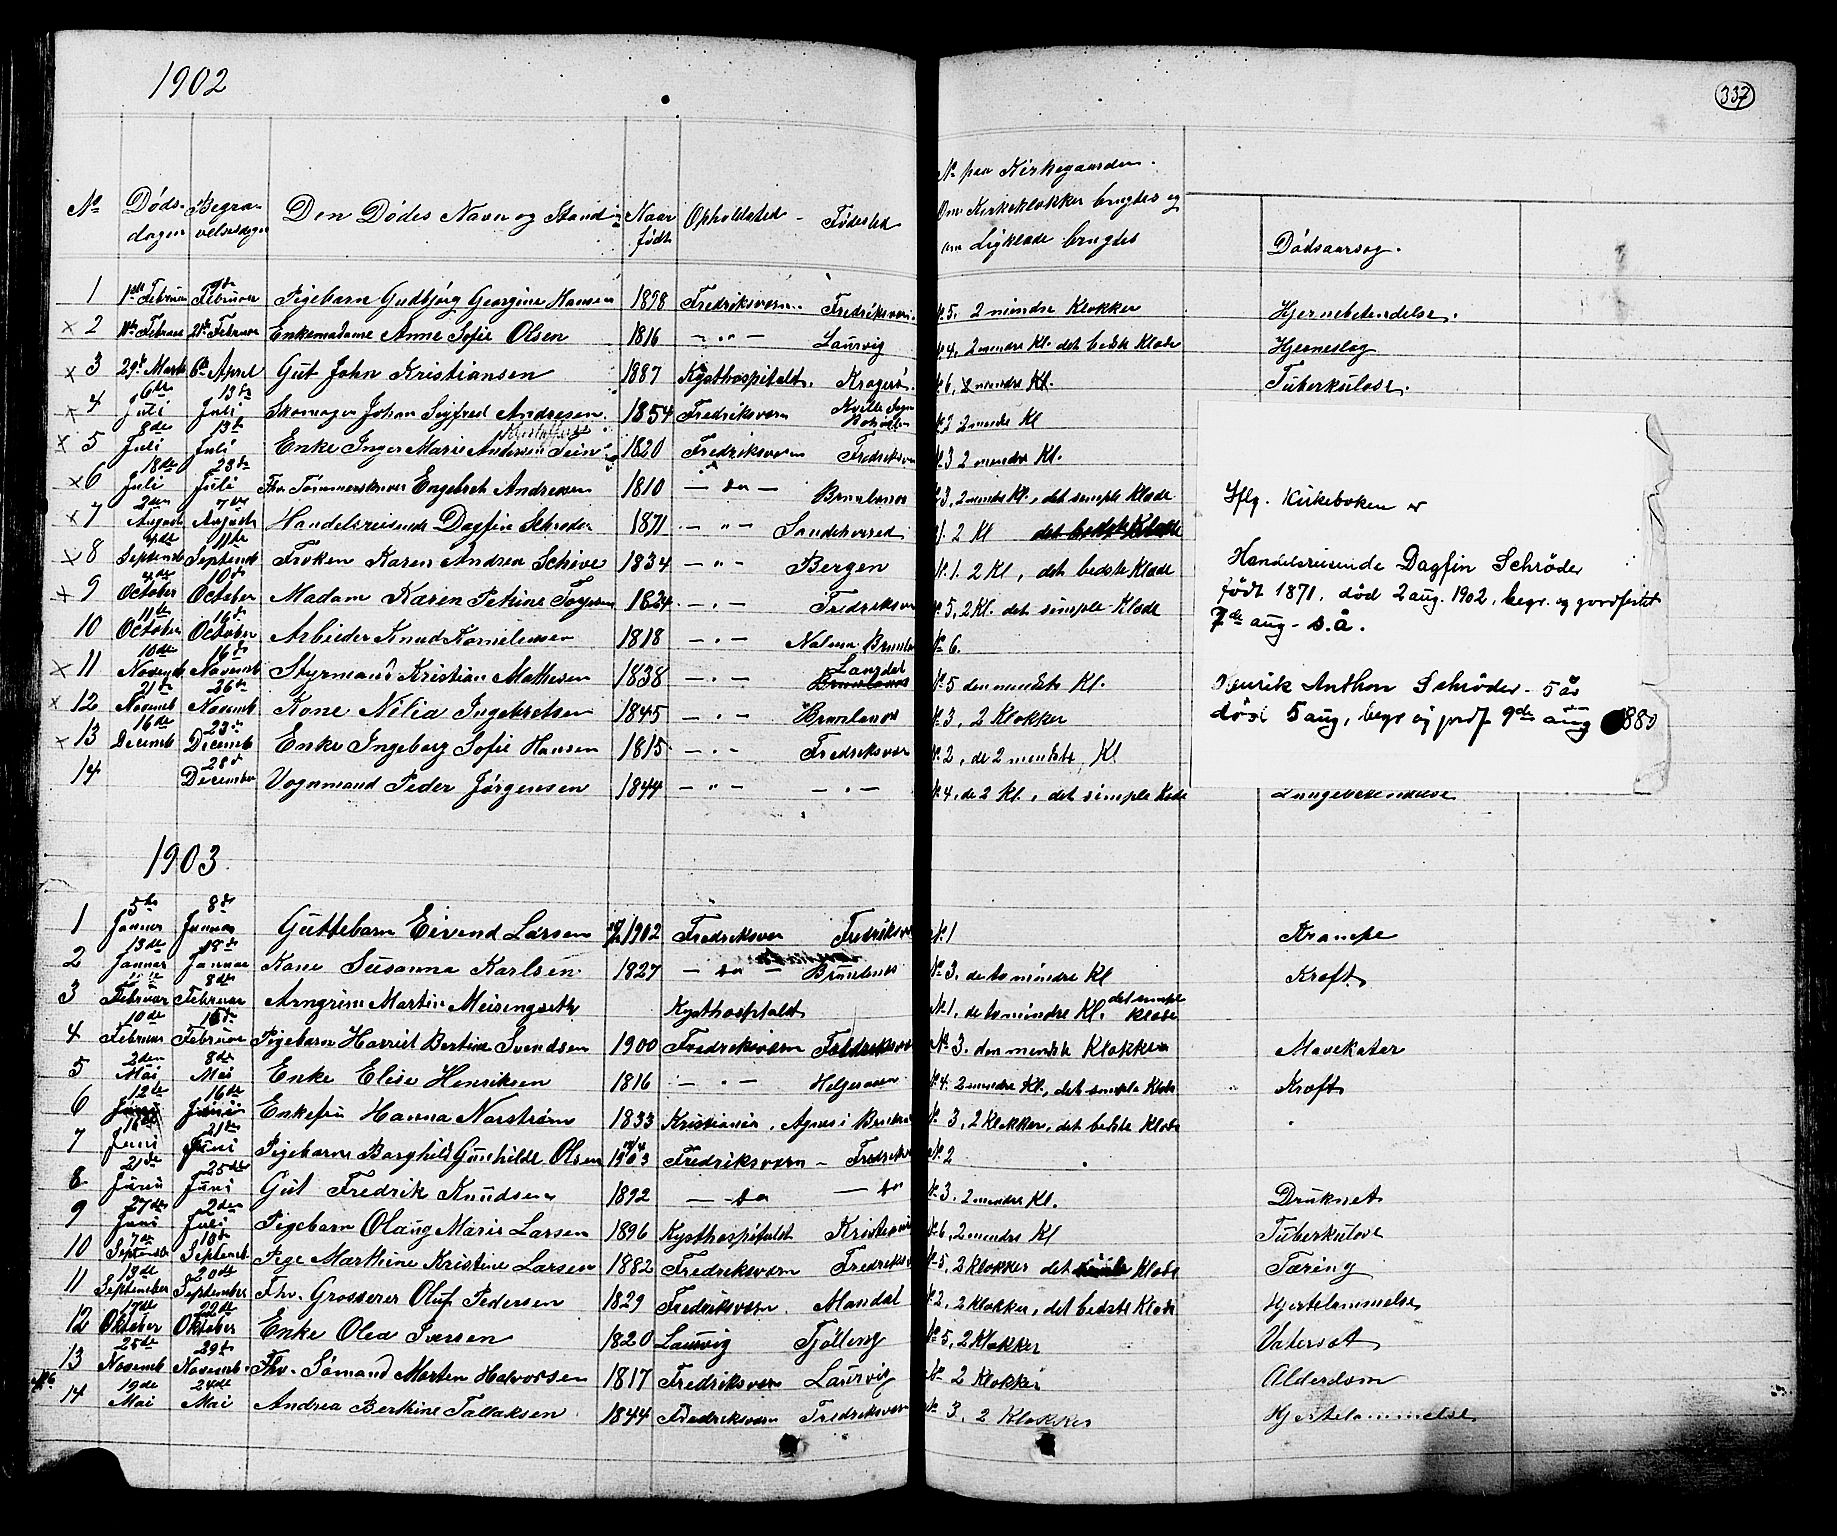 1902
337
No Dødsdagen Begravelsesdagen Den Dødes Navn og Stand Naar født Opholdsted - Fødested No paa Kirkegaarden. Om Kirkeklokker brugtes og om Ligklæde brugtes Dødsaarsag.
1 1ste Februar Februar Pigebarn Gudbjørg Georgine Hansen 1898 Fredriksværn. Fredriksværn. No 5. 2 mindre Klokker Hjernebetendelse.
x 2 Februar Februar Enkemadame Anne Sofie Olsen 1816 - " - Laurvig No 4. 2 mindre Kl. det bedste Klæde Hjerneslag
x 3 29de Marts 6te April Gut John Kristiansen 1887 Kysthospitalet. Kragerø. No 6. 2 mindre Kl. Tuberkulose.
x 4 6te Juli 13de Juli Skomager Johan Sigfred Andresen. 1854 Fredriksværn No 2 2 mindre Kl
x 5 8de Juli 13de Juli Enke Inger Marie Andersen 1820 Fredriksværn Fredriksværn No 3 2 mindre Kl.
x 6 18de Juli 28de Juli Fhv. Tømmermand Engebret Andresen 1810 - do - Brunlanes No 3, 2 mindre Kl., det simple Klæde
x 7 2den August 7de August Handelsreisende Dagfin Schrøder 1871 - " - Sandeherred 2 Kl det bedste Klæde
x 8 4de September 11te September Frøken Karen Andrea Schive 1834 - " - Bergen No. 1. 2 Kl, det bedste Klæde
x 9 4de October 10de October Madam Karen Petrine 1824 - " - Fredriksværn No 5, 2 Kl. det simple Klæde
10 11te October 16de October Arbeider Knud Kornelius­sen 1818 - " - Brunla No 6.
x 11 10de Novemb 16de Novemb Styrmand Kristian Mathesen 1838 - " - Langdal Brunlanes No 5 den mindste Kl.
x 12 21de Novemb 26de Novemb Kone Nilia Ingebretsen 1845 - " - Brunlanes No 3, 2 Klokker
x 13 16de Decemb 23de Decemb Enke Ingeborg Sofie Hansen 1815 - " - Fredriksvær No 2, de 2 mindste Kl
14 28de December Vognmand Peder Jørgensen 1844 - " - - " - No 4, de 2 Kl., det simple Klæde Lungebetendelse
Iflg. Kirkeboken er
Handelsreisende Dagfin Schrøder
født 1871, död 2 aug. 1902, begr. og jordfestet
7de aug - s.å.
Henrik Anthon Schrøder - 5 år
död 5 aug, begr og jordf 9de aug 1880
1903.
1 5te Januar 8de Januar Guttebarn Eivend Larsen 1902 Fredriksvær Fredriksvæ No 1 Krampe
2 13de Januar 18de Januar Kone Susanna Karlsen 1827 - do - Brunlanes No 3. de to mindre Kl Kræft
3 Februar 8de Februar Arngrim Martin Meisingseth Kysthospitalet No 1, de to mindre Kl. det simple Klæde
4 10de Februar 15de Februar Pigebarn Harriet Bertine Svendsen 1900 Fredriksværn Fredriksvær No 3. den mindste Klokker Mavekatar
5 2den Mai 8de Mai Enke Elise Henriksen 1816 - " - Helgeroaen No 4. 2 mindre Kl., det simple Klæde Kræft
6 12te Juni 16de Juni Enkefru Hanna Norstrøm 1833 Kristiania. Agnes i Brunla No 3, 2 Klokker, det bedste Klæde
7 16de Juni 21de Juni Pigebarn Borghild Gunhilde Olsen 1903 Fredriksværn - Fredriks No 2
8 21de Juni 25de Juni Gut Fredrik Knudsen 1892 - do - do No 3. 2 mindre Kl. Druknet
9 27de Juni 2den Juli Pigebarn Olaug Marie Larsen 1896 Kysthospitalet Kristiania No 6, 2 mindre Kl Tuberkulose
10 7de September Septemb Pige Marthine Kristine Larsen 1882 Fredriksværn Fredriksv No 5, 2 Klokker det Klæde Tæring
11 September 20de September Fhv. Grosserer Oluf Pedersen 1829 Fredriksværn. Mandal No 2, 2 Klokker, det bedste Klæde Hjertelammelse
12 17de Oktober 22de Oktober Enke Olea Iversen 1820 Laurvig Tjølling No 5, 2 Klokker Vatersot
13 25de Novemb 29de Novemb. Fhv. Sømand Morten Halvorsen 1817 Fredriksværn Laurvig No 2 Klokker Alderdom
14 19de Mai 24de Mai Andrea Berthine Tallaksen 1844 Fredriksværn Fredriksværn No 3, 2 Klokker Hjertelammelse